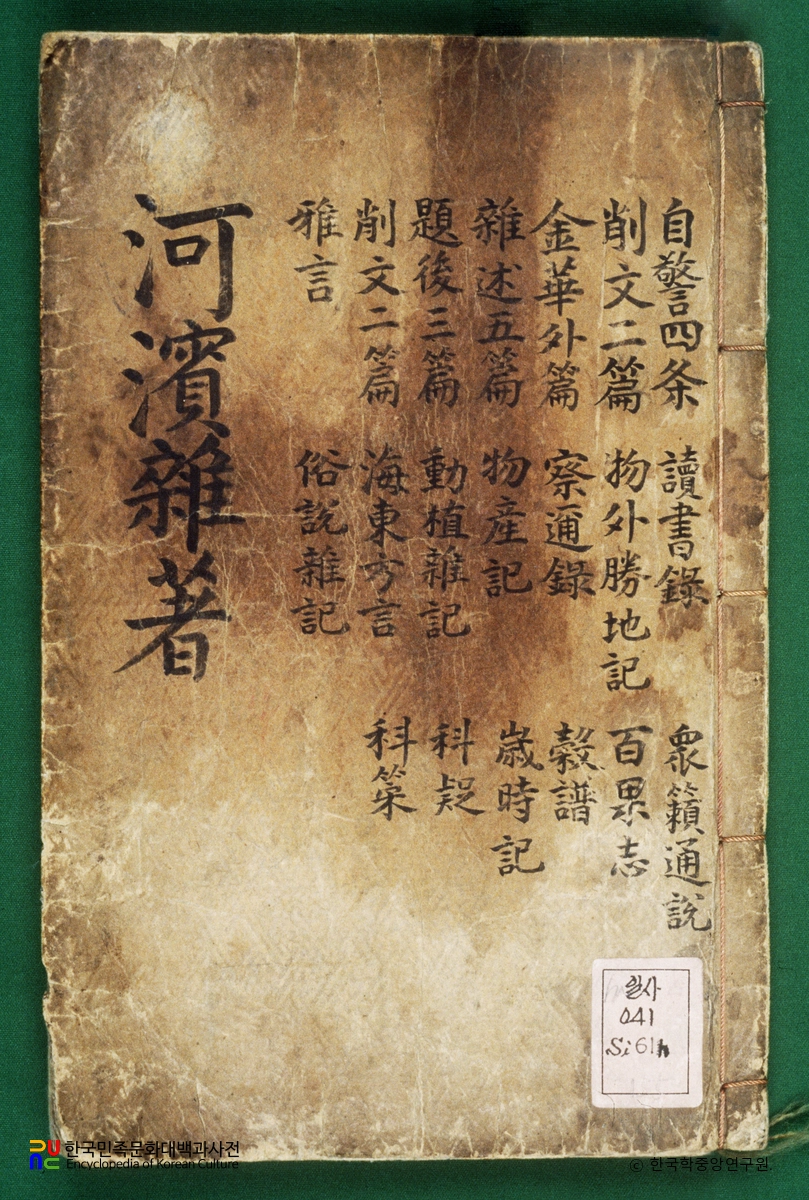 自警四条 讀書錄 衆籟通說
削文二篇 物外勝地記 百果志
金華外篇 察邇錄 穀譜
雜述五篇 物産記 歲時記
題後三篇 動植雜記 科疑
削文二篇 海東方言 科策
雅言 俗說雜記
河濱雜著
일사
041
Si61h
한국민족문화대백과사전
Encyclopedia of Korean Culture
© 한국학중앙연구원